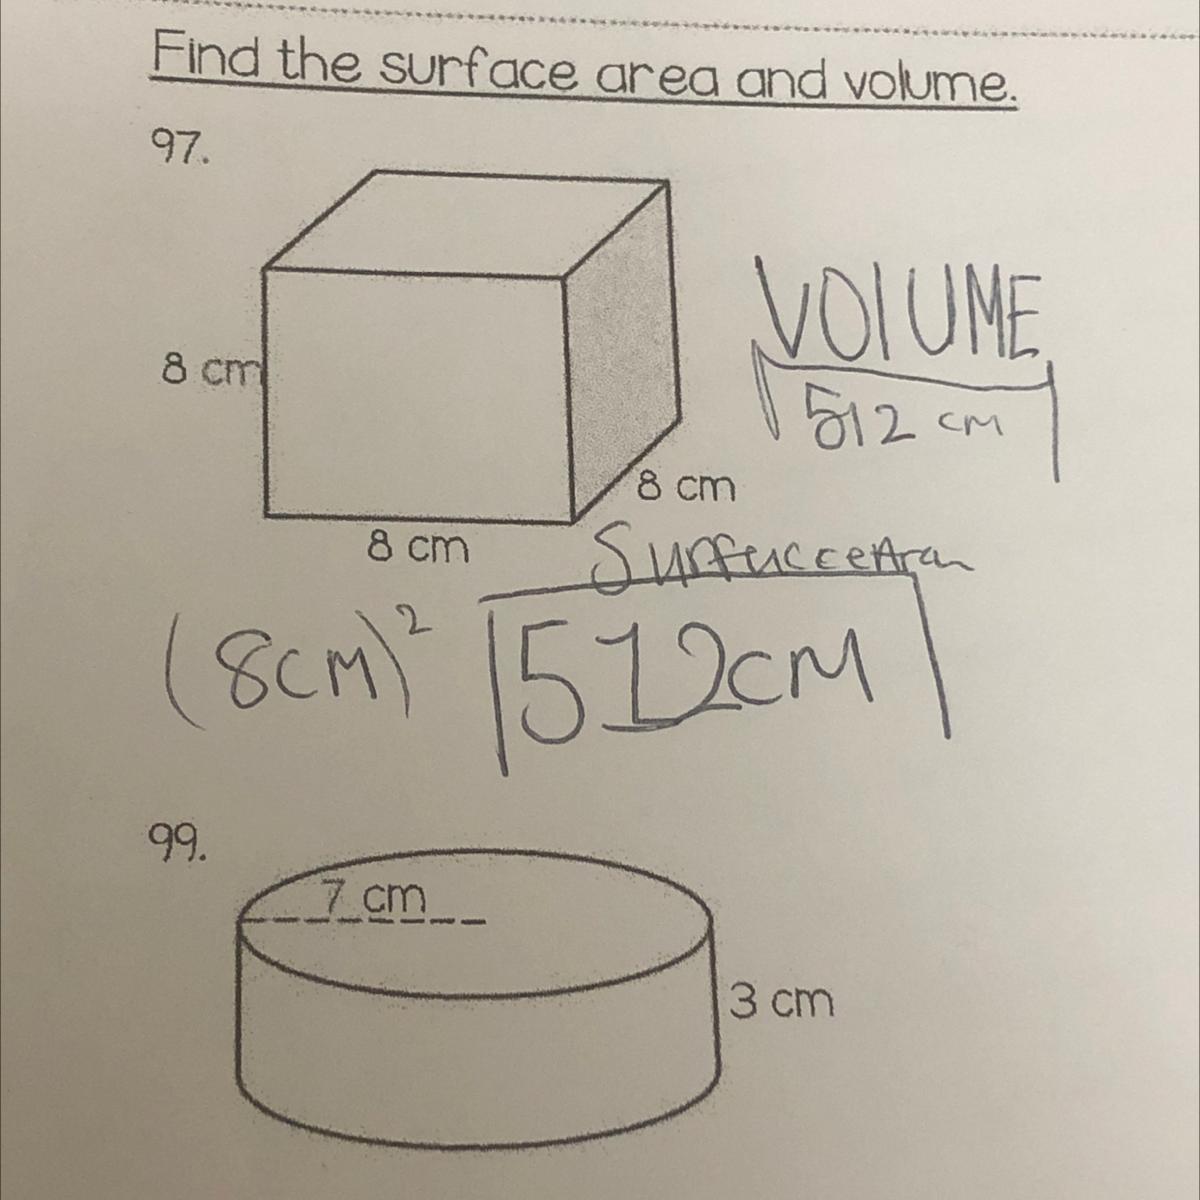 Find the surface area and volume.
97.
8 cm
VOlUME
512 cm
8 cm
8 cm
SurfucceAra
(8cm)² 512cm
99.
7 cm
3 cm